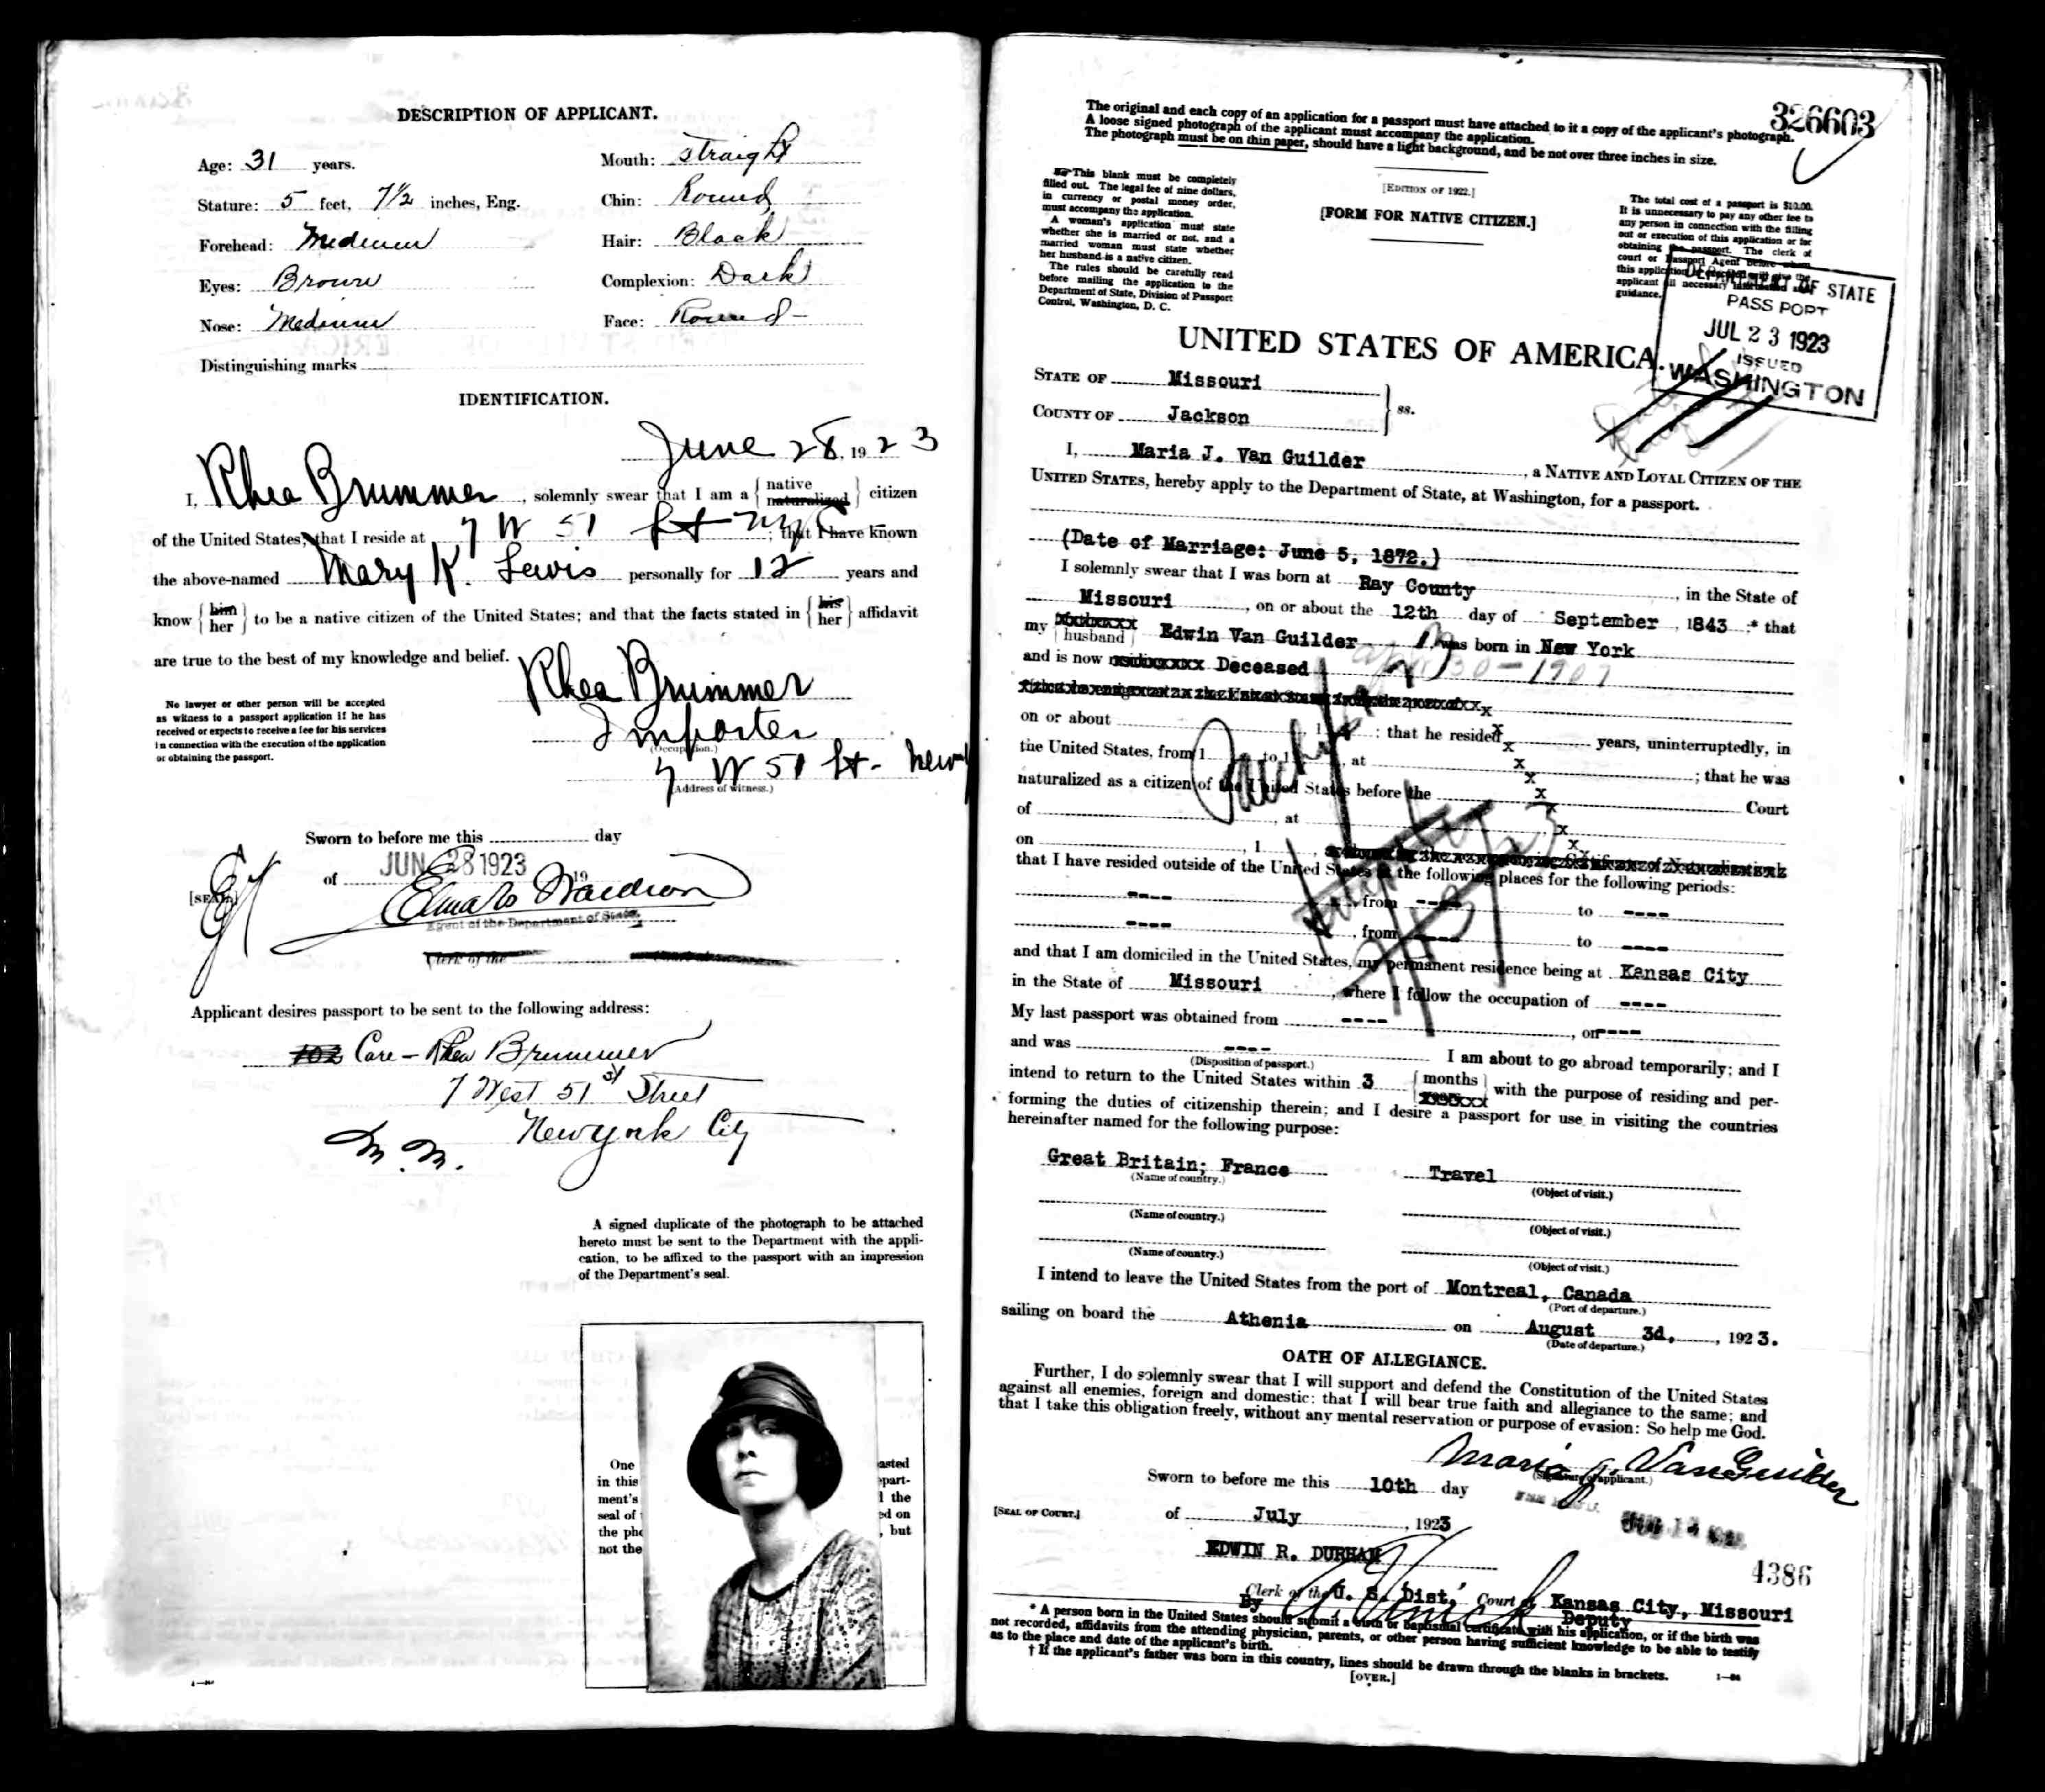 DESCRIPTION OF APPLICANT.
Age: 31 years.
Mouth: straight
Stature: 5 feet, 7½ inches, Eng.
Chin: Round
Forehead: Medium
Hair: Black
Eyes: Brown
Complexion: Dark
Nose: Medium
Face: Round –
Distinguishing marks
IDENTIFICATION.
June 28, 1923
I, Rhea Brummer, solemnly swear that I am a { native naturalized } citizen
of the United States; that I reside at 7 W 51 St NYC; that I have known
the above-named Mary K. Lewis personally for 12 years and
know { him her } to be a native citizen of the United States; and that the facts stated in { his her } affidavit
are true to the best of my knowledge and belief.
Rhea Brummer
No lawyer or other person will be accepted
as witness to a passport application if he has
received or expects to receive a fee for his services
in connection with the execution of the application
or obtaining the passport.
Importer
(Occupation.)
7 W 51 St - New
(Address of witness.)
Sworn to before me this day
of JUN 28 1923 19
[SEAL.]
Agent of the Department of State.
Clerk of the
Applicant desires passport to be sent to the following address:
102 Care – Rhea Brummer
7 West 51st Street
New York City
M. M.
A signed duplicate of the photograph to be attached
hereto must be sent to the Department with the appli-
cation, to be affixed to the passport with an impression
of the Department's seal.
One asted
in this part-
ment's the
seal of ed on
the pho , but
not the
The original and each copy of an application for a passport must have attached to it a copy of the applicant's photograph.
A loose signed photograph of the applicant must accompany the application.
The photograph must be on thin paper, should have a light background, and be not over three inches in size.
326603
This blank must be completely
filled out. The legal fee of nine dollars,
in currency or postal money order,
must accompany the application.
A woman's application must state
whether she is married or not, and a
married woman must state whether
her husband is a native citizen.
The rules should be carefully read
before mailing the application to the
Department of State, Division of Passport
Control, Washington, D. C.
[EDITION OF 1922.]
[FORM FOR NATIVE CITIZEN.]
The total cost of a passport is $10.00.
It is unnecessary to pay any other fee to
any person in connection with the filling
out or execution of this application or for
obtaining the passport. The clerk of
court or Passport Agent before whom
this application is executed will give the
applicant all necessary information and
guidance.
DEPARTMENT OF STATE
PASSPORT
JUL 23 1923
ISSUED
WASHINGTON
UNITED STATES OF AMERICA.
STATE OF Missouri
COUNTY OF Jackson
ss.
I, Maria J. Van Guilder, a NATIVE AND LOYAL CITIZEN OF THE
UNITED STATES, hereby apply to the Department of State, at Washington, for a passport.
(Date of Marriage: June 5, 1872.)
I solemnly swear that I was born at Ray County, in the State of
Missouri, on or about the 12th day of September, 1843 :* that
my husband Edwin Van Guilder was born in New York
and is now Deceased April 30 - 1907
on or about , 1 : that he resided years, uninterruptedly, in
the United States, from 1 to 1 , at ; that he was
naturalized as a citizen of the United States before the Court
of , at
on , 1
that I have resided outside of the United States at the following places for the following periods:
---- , from ---- to ----
---- , from ---- to ----
and that I am domiciled in the United States, my permanent residence being at Kansas City
in the State of Missouri, where I follow the occupation of ----
My last passport was obtained from ---- , on ----
and was ---- I am about to go abroad temporarily; and I
(Disposition of passport.)
intend to return to the United States within 3 { months } with the purpose of residing and per-
forming the duties of citizenship therein; and I desire a passport for use in visiting the countries
hereinafter named for the following purpose:
Great Britain; France Travel
(Name of country.) (Object of visit.)
(Name of country.) (Object of visit.)
(Name of country.) (Object of visit.)
I intend to leave the United States from the port of Montreal, Canada
(Port of departure.)
sailing on board the Athenia on August 3d, , 1923.
(Date of departure.)
OATH OF ALLEGIANCE.
Further, I do solemnly swear that I will support and defend the Constitution of the United States
against all enemies, foreign and domestic; that I will bear true faith and allegiance to the same; and
that I take this obligation freely, without any mental reservation or purpose of evasion: So help me God.
Maria J. Van Guilder
(Signature of applicant.)
Sworn to before me this 10th day
[SEAL OF COURT.] of July, 1923
EDWIN R. DURHAM
4386
Clerk of the U. S. Dist. Court Kansas City, Missouri
By Deputy
* A person born in the United States should submit a birth or baptismal certificate with his application, or if the birth was
not recorded, affidavits from the attending physician, parents, or other person having sufficient knowledge to be able to testify
as to the place and date of the applicant's birth.
† If the applicant's father was born in this country, lines should be drawn through the blanks in brackets.
[OVER.]